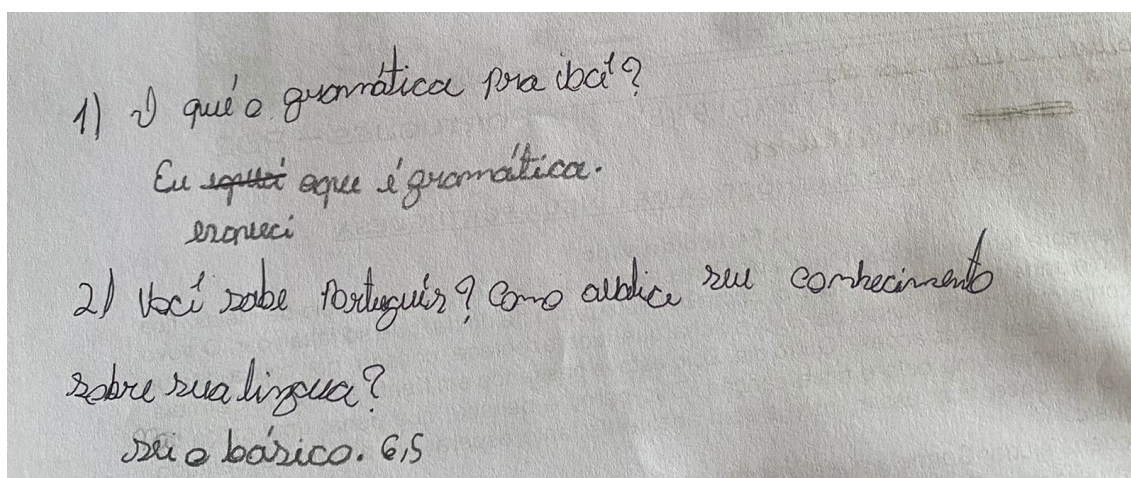 1) O que é gramática pra você?
Eu aque é gramática.
esqueci
2) Você sabe Português? Como avalia seu conhecimento
sobre sua língua?
sei o básico. 6,5